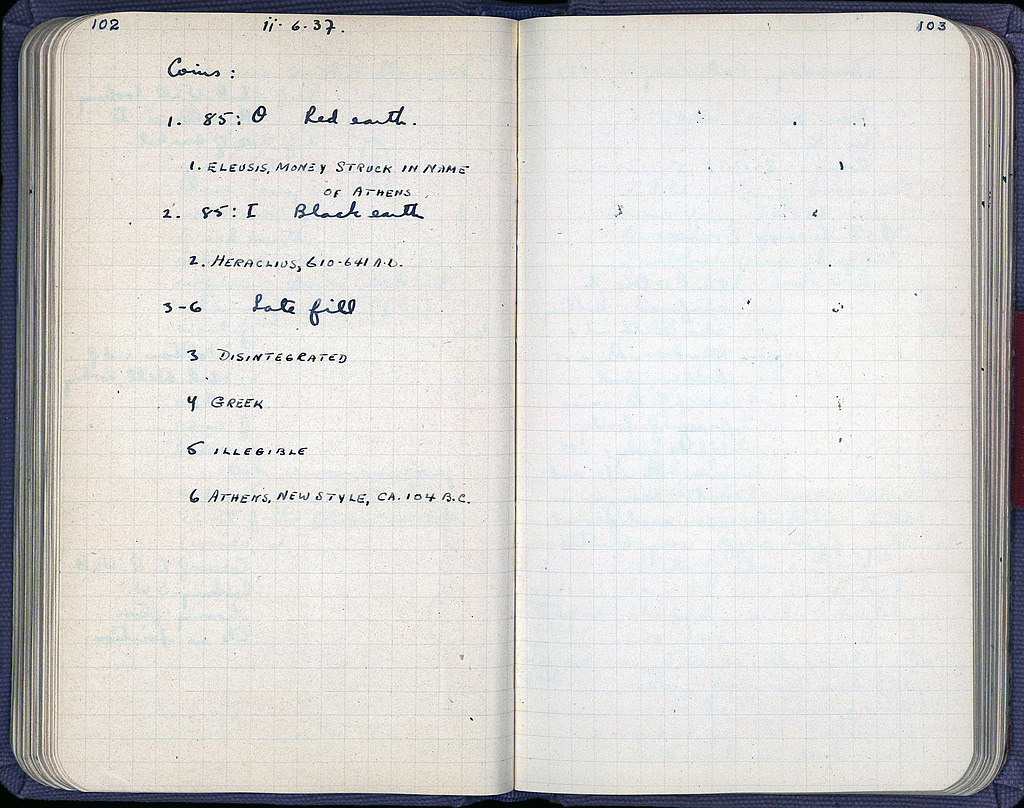 102
ii·6·37.
Coins:
1. 85: Θ Red earth.
1. ELEUSIS, MONEY STRUCK IN NAME
OF ATHENS
2. 85: I Black earth
2. HERACLIUS, 610-641 A.D.
3-6 Late fill
3 DISINTEGRATED
4 GREEK
5 ILLEGIBLE
6 ATHENS, NEW STYLE, CA. 104 B.C.
103